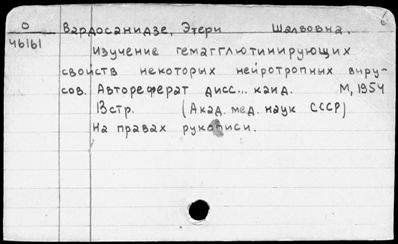 О Вардосанидзе, Этери Шалвовна.
46161
Изучение гемагглютинирующих
свойств некоторых нейротропных виру-
сов. Автореферат дисс... канд. М, 1954
13 стр. (Акад. мед. наук СССР)
На правах рукописи.